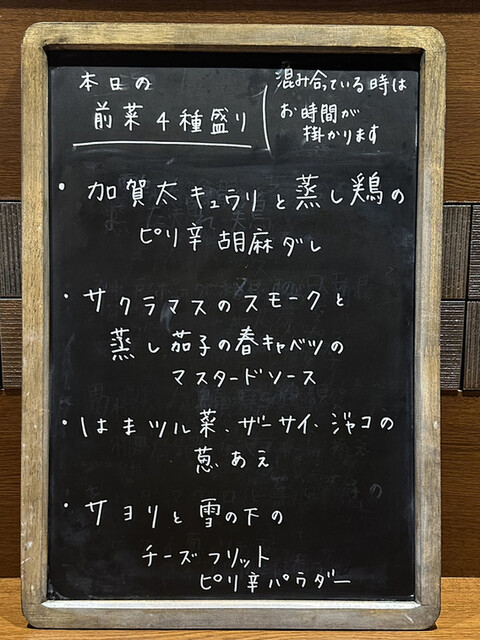 本日の
前菜4種盛り
混み合っている時は
お時間が
掛かります
・加賀太キュウリと蒸し鶏の
ピリ辛胡麻ダレ
・サクラマスのスモークと
蒸し茄子の春キャベツの
マスタードソース
・はまツル菜、ザーサイ、ジャコの
葱あえ
・サヨリと雪の下の
チーズフリット
ピリ辛パウダー